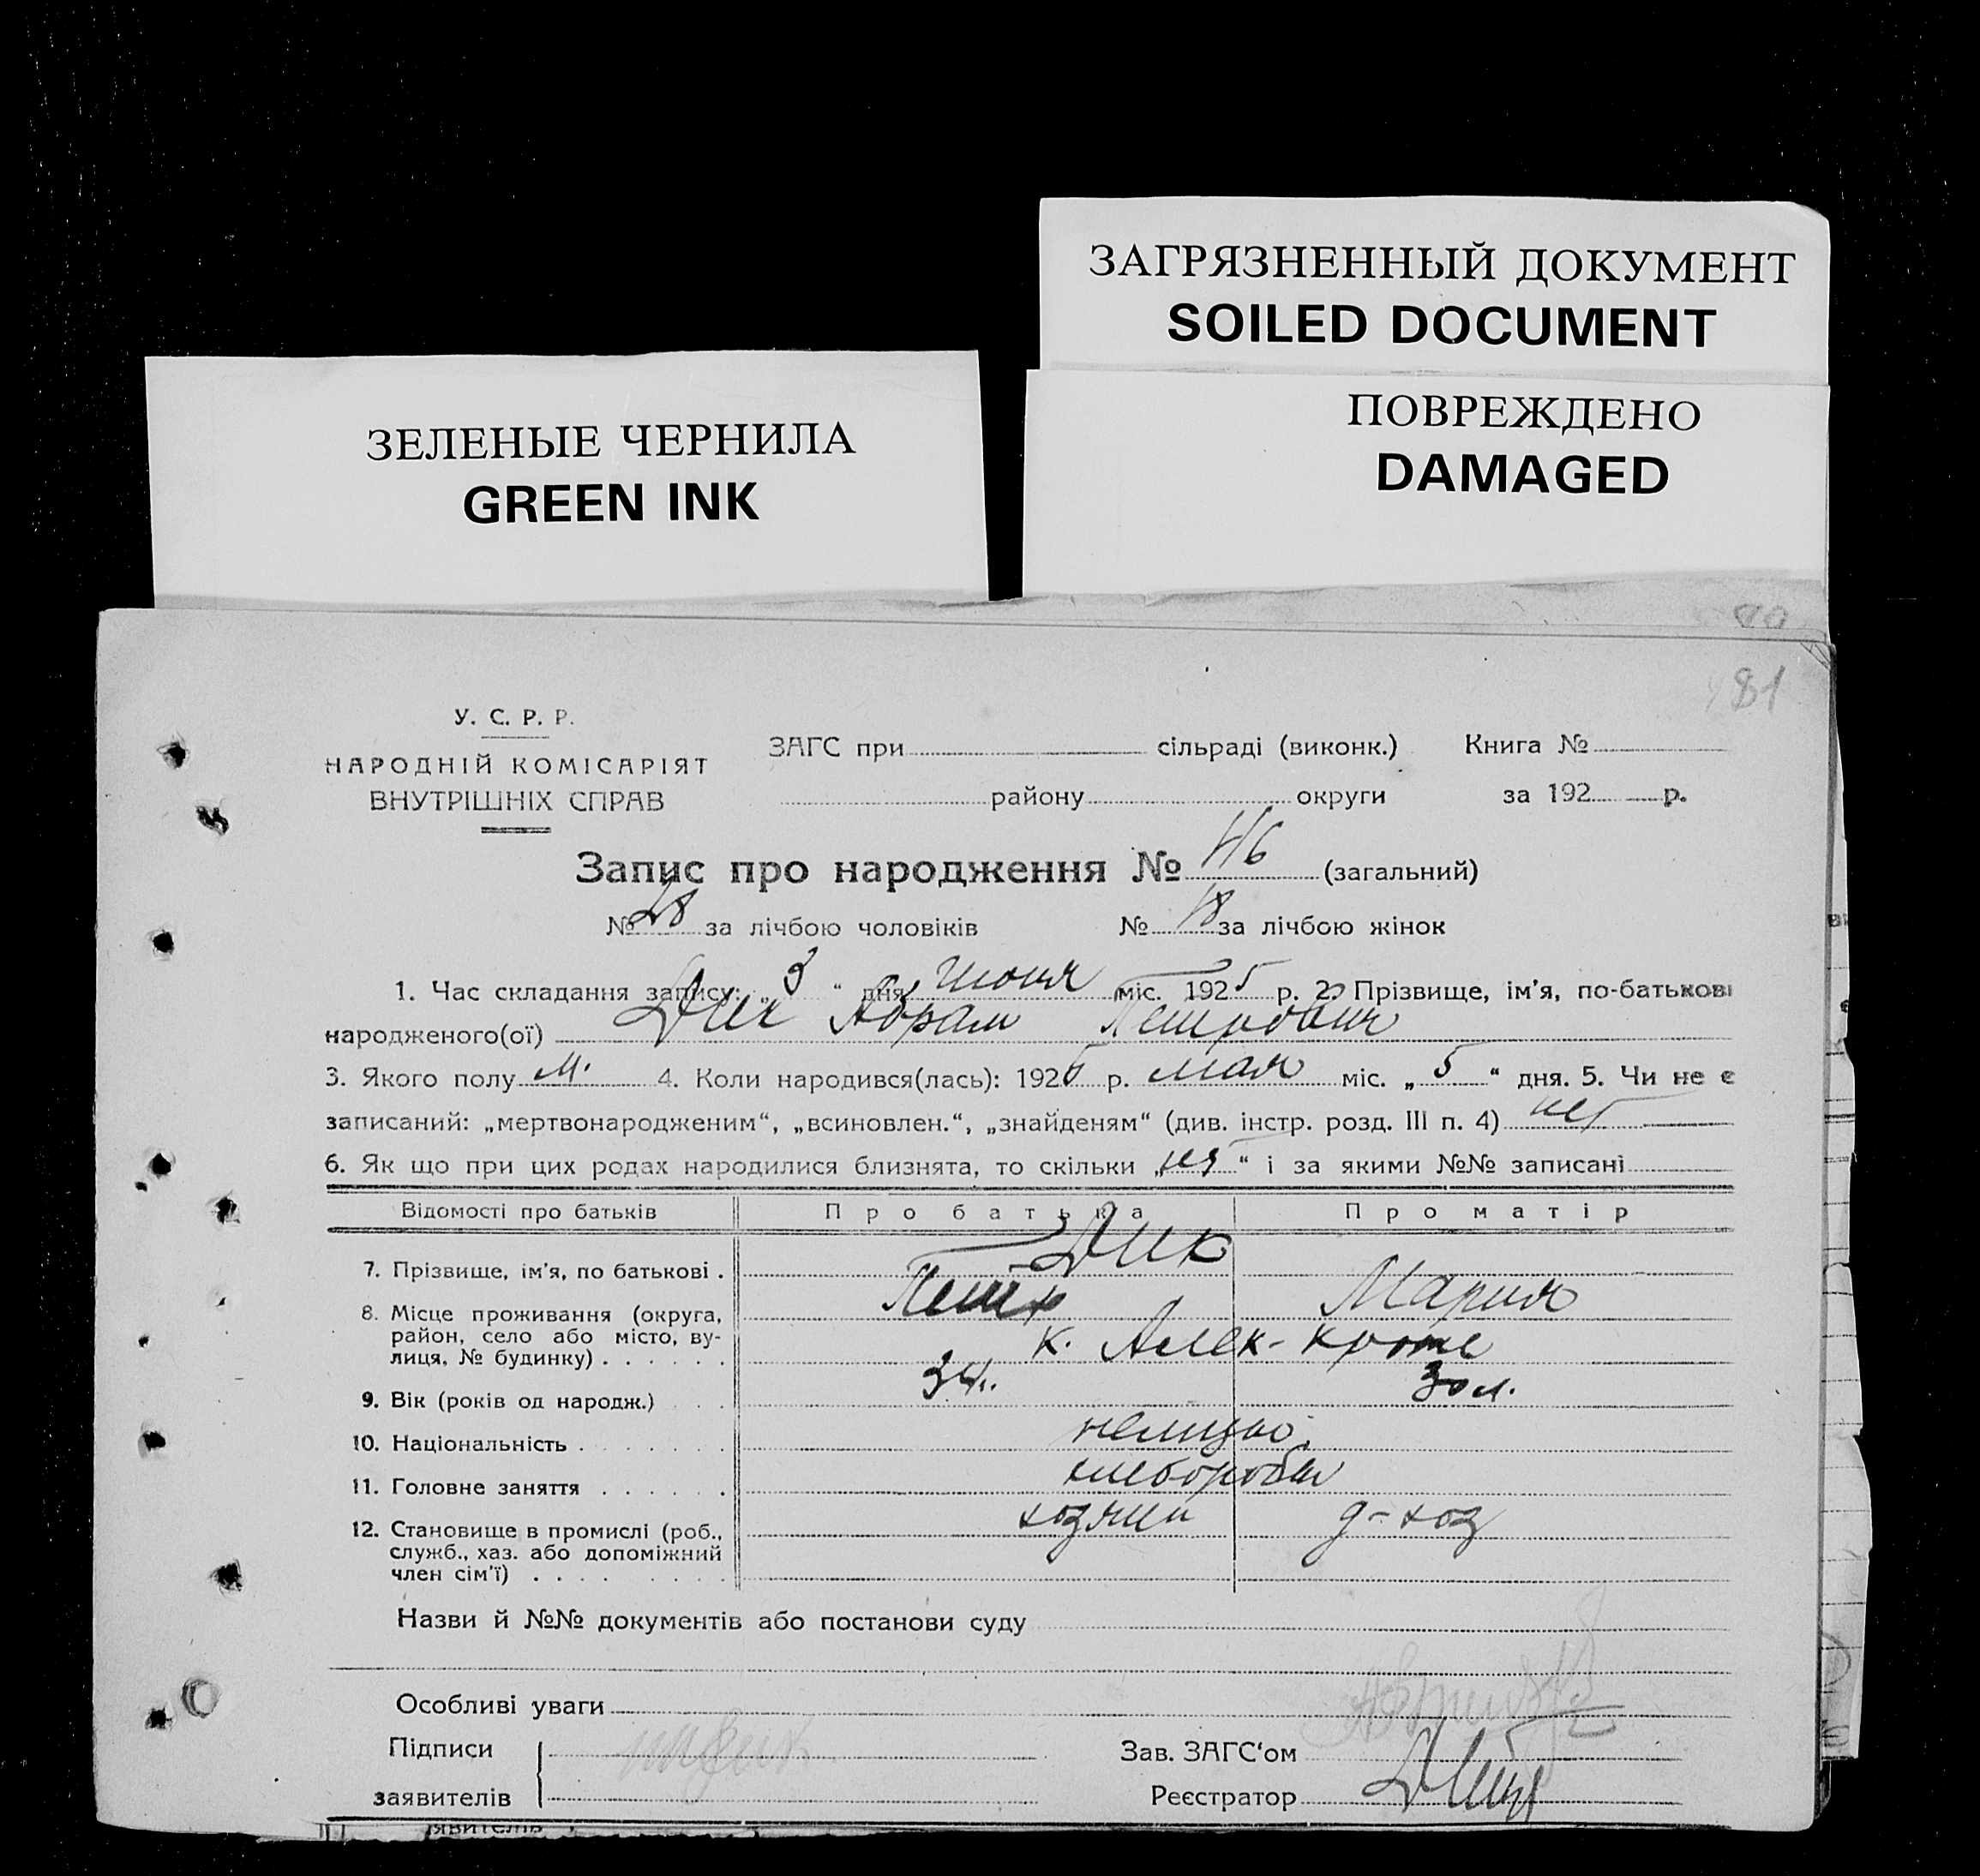 ЗАГРЯЗНЕННЫЙ ДОКУМЕНТ
SOILED DOCUMENT
ЗЕЛЕНЫЕ ЧЕРНИЛА
GREEN INK
ПОВРЕЖДЕНО
DAMAGED
81
У. С. Р. Р.
НАРОДНІЙ КОМІСАРІЯТ
ВНУТРІШНІХ СПРАВ
ЗАГС при сільраді (виконк.) Книга №
району округи за 192 р.
Запис про народження № 46 (загальний)
№ 28 за лічбою чоловіків № 18 за лічбою жінок
1. Час складання запису: „ 3 “ дня июня міс. 1925 р. 2. Прізвище, ім'я, по-батькові
народженого(ої) Дик Абрам Петрович
3. Якого полу м. 4. Коли народився(лась): 1925 р. мая міс. „ 5 “ дня. 5. Чи не є
записаний: „мертвонародженим“, „всиновлен.“, „знайденям“ (див. інстр. розд. III п. 4) нет
6. Як що при цих родах народилися близнята, то скільки „нет“ і за якими №№ записані
Відомості про батьків Про батька Про матір
7. Прізвище, ім'я, по батькові . Дик
Петр Мария
8. Місце проживання (округа,
район, село або місто, ву-
лиця, № будинку) . . . . . . к. Алек-кроне
9. Вік (років од народж.) . . . 34. 30 л.
10. Національність . . . . . . . немцы
11. Головне заняття . . . . . . хлебороб
12. Становище в промислі (роб.,
служб., хаз. або допоміжний
член сім'ї) . . . . . . . . хозяин д-хоз
Назви й №№ документів або постанови суду
Особливі уваги
Підписи
заявителів
Зав. ЗАГС'ом
Реєстратор